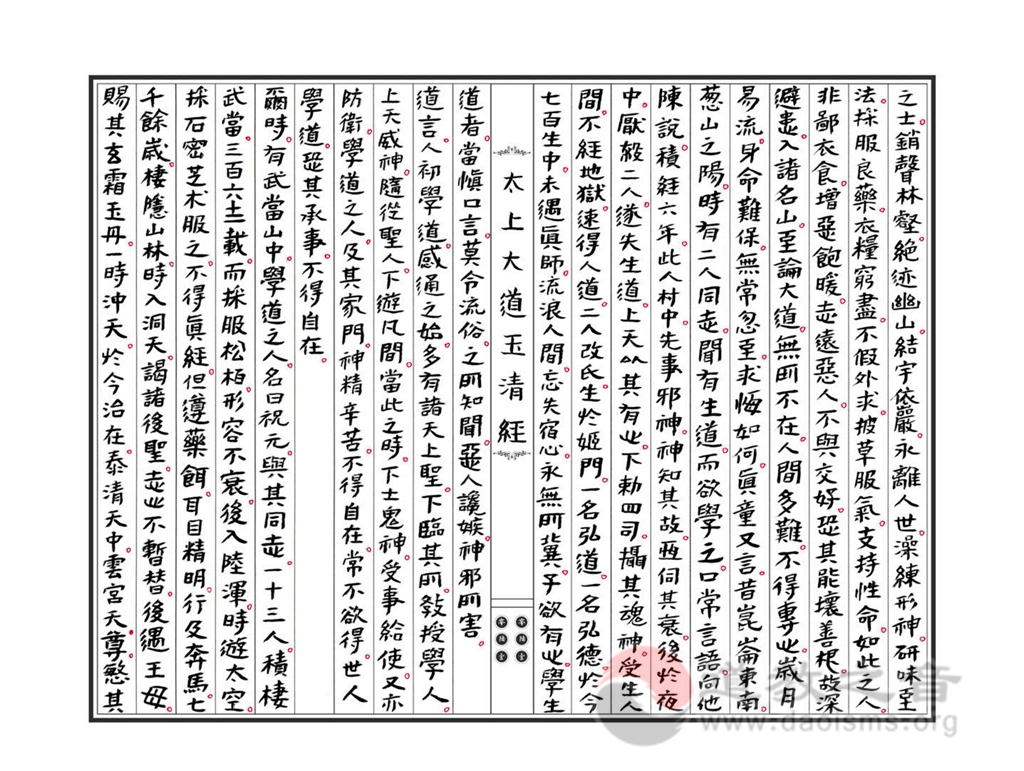 之士銷聲林壑絕迹幽山結宇依巖永離人世澡練形神研味至
法採服良藥衣糧窮盡不假外求披草服氣支持性命如此之人
非鄙衣食增惡飽暖志遠惡人不與交好恐其能壞善根故深
避患入諸名山至論大道無所不在人間多難不得專志歲月
易流身命難保無常忽至求悔如何真童又言昔崑崙東南
葱山之陽時有二人同志聞有生道而欲學之口常言語向他
陳說積經六年此人村中先事邪神神知其故西伺其衰後於夜
中厭殺二人遂失生道上天以其有心下勅四司攝其魂神受生人
間不經地獄速得人道二人改氏生於姬門一名弘道一名弘德於今
七百生中未遇真師流浪人間忘失宿心永無所冀子欲有心學生
太上大道玉清經
道者當慎口言莫令流俗之所知聞惡人讒嫉神邪所害
道言人初學道感通之始多有諸天上聖下臨其所教授學人
上天威神隨從聖人下遊凡間當此之時下士鬼神受事給使又亦
防衛學道之人及其家門神精辛苦不得自在常不欲得世人
學道恐其承事不得自在
爾時有武當山中學道之人名曰祝元與其同志一十三人積棲
武當三百六十二載而採服松栢形容不衰後入陸渾時遊太空
採石密芝朮服之不得真經但遵藥餌耳目精明行及奔馬七
千餘歲棲隱山林時入洞天謁諸後聖志心不暫替後遇王母
賜其玄霜玉丹一時沖天於今治在泰清天中雲宮天尊愍其
道教之音
www.daoisms.org